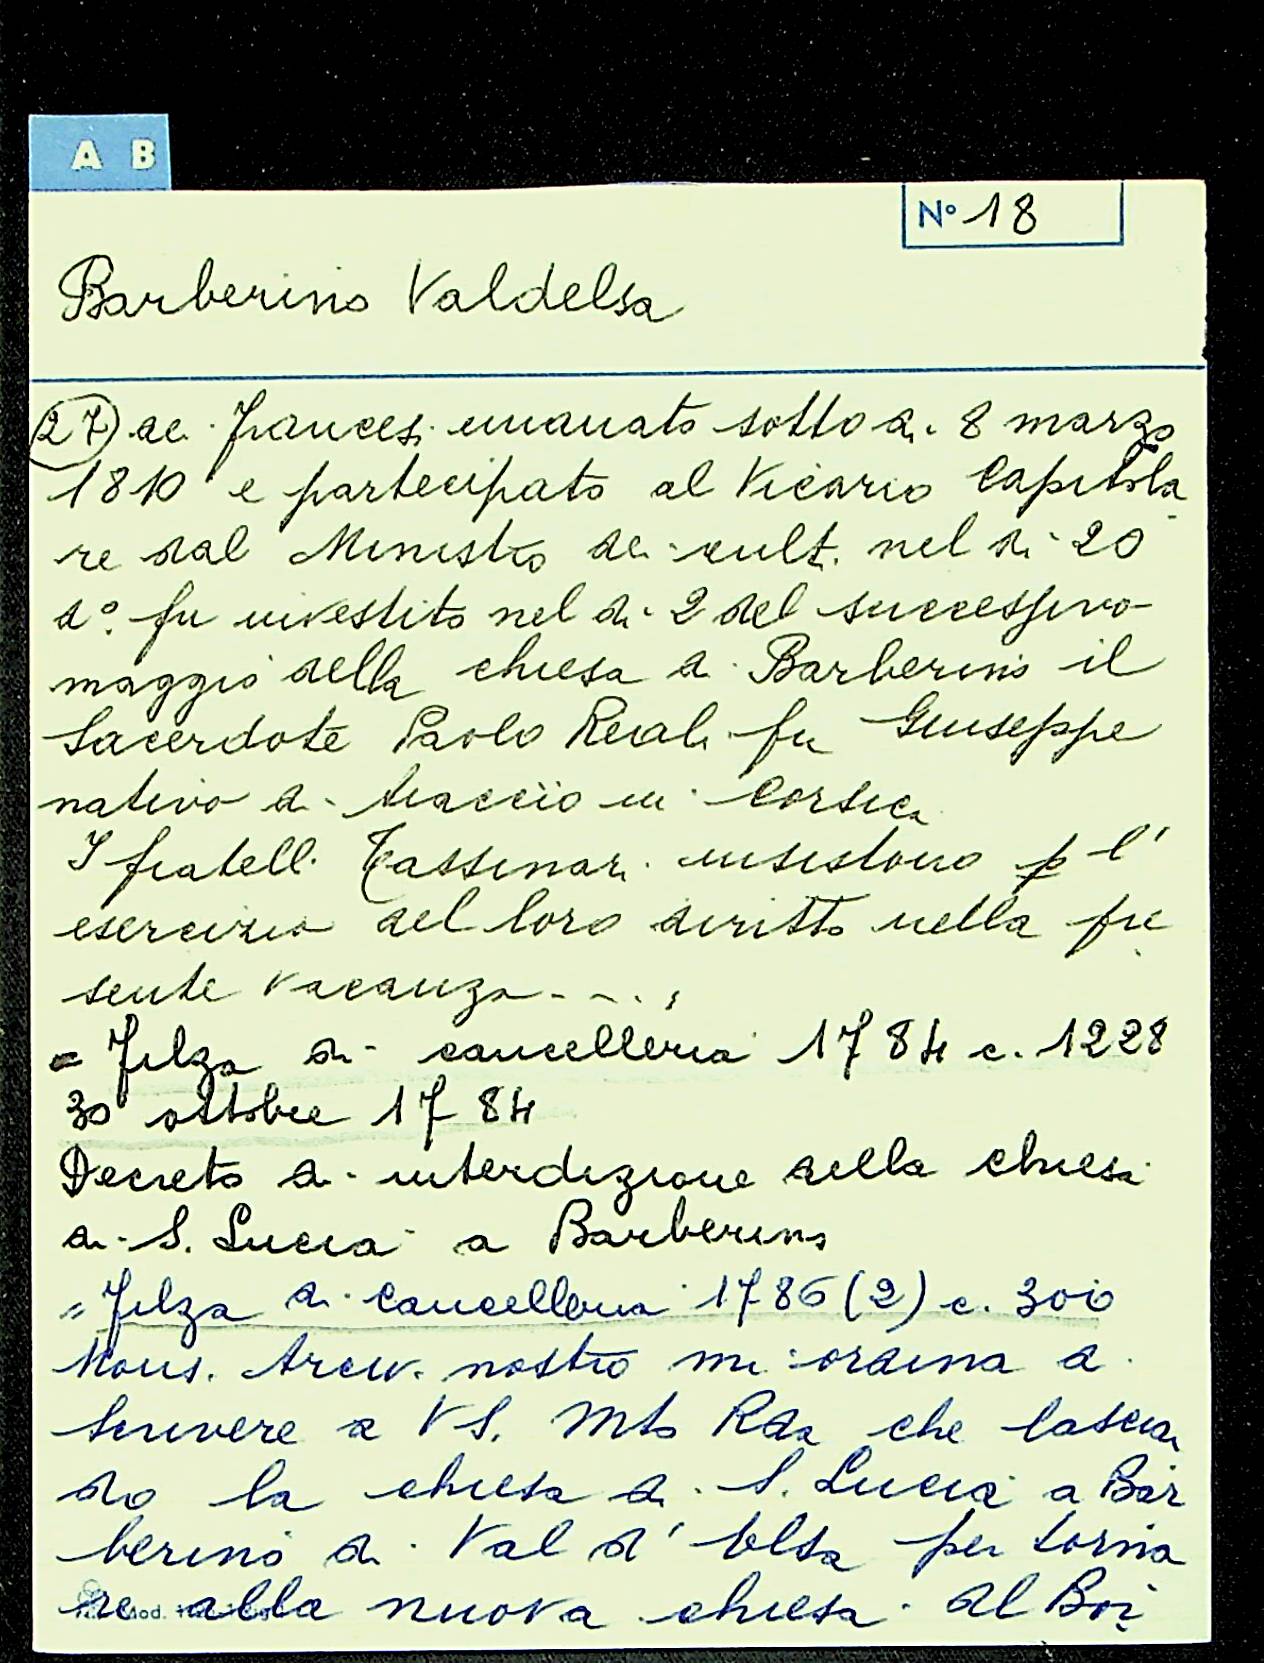 A B
N° 18
Barberino Valdelsa
27) dei francesi emanato sotto di 8 marzo
1810 e partecipato al Vicario Capitola
re dal Ministro dei culti nel di 20
d°. fu investito nel di 2 del successivo
maggio della chiesa di Barberino il
Sacerdote Paolo Reali fu Giuseppe
nativo di Aiaccio in Corsica
I fratelli Tassinari insistono p l'
esercizio del loro diritto nella pre
sente vacanza ....
= Filza di cancelleria 1784 c. 1228
30 ottobre 1784
Decreto di interdizione della chiesa
di S. Lucia a Barberino
= Filza di cancelleria 1786 (2) c. 300
Mons. Arciv. nostro mi ordina di
scrivere a VS. Mto Rda che lascian
do la chiesa di S. Lucia a Bar
berino di Val d'Elsa per torna
re alla nuova chiesa al Boi
Mod.